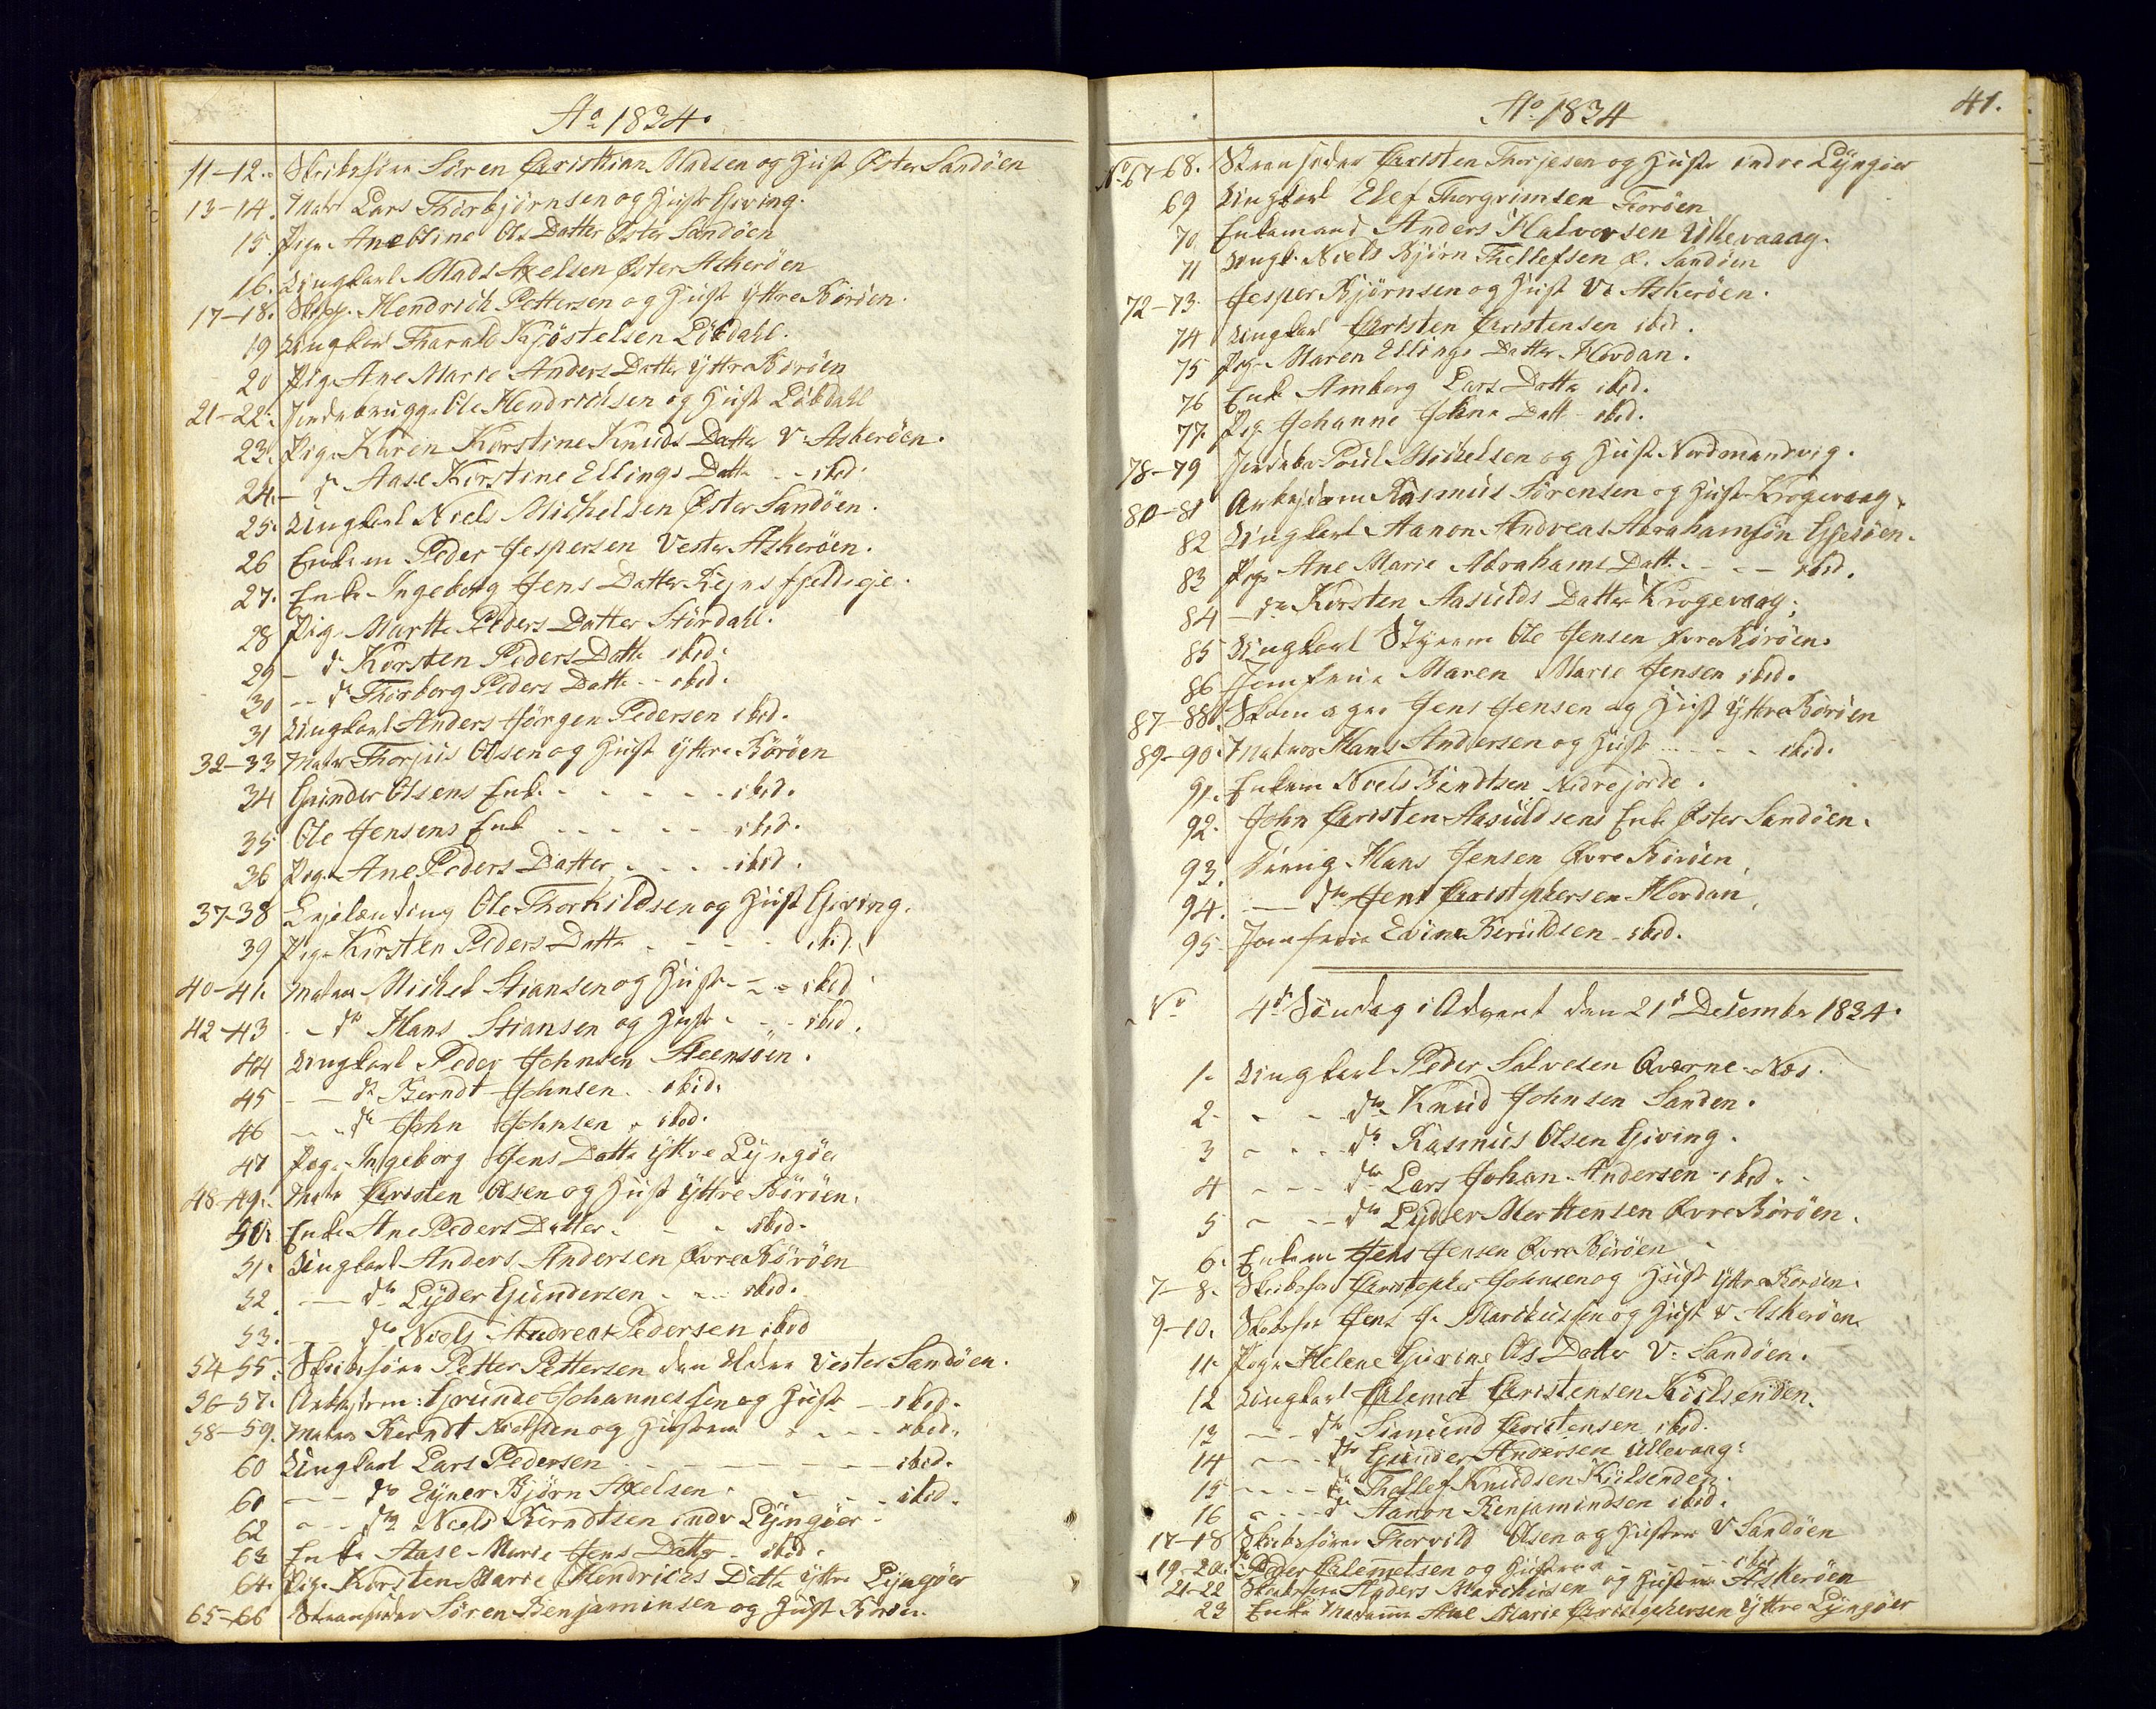 Ao 1834.
11-12. Skibsføre Søren Christian Madsen og Hust Øster Sandöen
13-14. Matr Lars Thorbjörnsen og Hustr Giving.
15. Pige Anestine Ols Datter Øster Sandöen
16. Ungkarl Mads Axelsen Øster Askeröen
17-18. Skipp. Hendrich Pettersen og Hust Yttre Böröen.
19 Ungkarl Tharald Kjöstelsen Löbdahl.
20 Pige Ane Marie Anders Datter Yttre Böröen
21-22. Jordebrugge Ole Hendrichsen og Hust Löbdahl
23. Pige Karen Kirstine Knuds Datter V. Askeröen.
24. - do Aase Kirstine Ellings Datte - - ibid.
25. Ungkarl Niels Michelsen Øster Sandöen.
26 Enkem Peder Jespersen Vester Askeröen.
27. Enke Ingeborg Jens Datter
28 Pige Marthe Peders Datter Stördahl.
29 - do Kirsten Peders Datte ibid.
30 - - do Thorborg Peders Datte - - ibid.
31 Ungkarl Anders Jörgen Pedersen ibid.
32-33 Matr Thorjus Olsen og Hust Yttre Böröen
34 Gunder Olsens Enke - - - - - ibid.
35 Ole Jensens Enk - - - - - ibid.
36 Pige Ane Peders Datter - - - - ibid.
37-38 Ole Thorkildsen og Hust Giving.
39 Pige Kirsten Peders Datte - - - - ibid.
40-41. Matros Michel Stiansen og Hustr - - - ibid
42-43 - - do Hans Stiansen og Hustr - - - ibid.
44 Ungkarl Peder Johnsen Steensöen.
45 - - do Berndt Johnsen - ibid.
46 - - do John Johnsen - ibid.
47 Pige Ingeborg Jens Datte Yttre Lÿngöer
48-49. Matr Christen Olsen og Hust Yttre Böröen.
50. Enke Ane Peders Datter - - - ibid.
51. Ungkarl Anders Andersen Øvre Böröen
52. - - do Lÿder Gundersen - - - ibid.
53. - - do Niels Andreas Pedersen ibid
54-55. Skibsføre Petter Pettersen den Eldre Vester Sandöen.
56-57. Arbejdsm: Grunde Johannessen og Hustr - - ibid.
58-59. Matros Berndt Nielsen og Hustrue - - - - ibid.
60 Ungkarl Lars Pedersen - - - - - - - ibid.
61 - - do Eÿner Björn Axelsen - - - - ibid.
62 - - do Niels Berndtsen indr Lÿngöer
63 Enke Aase Marie Jens Datter - ibid.
64. Pige Kirsten Marie Hendrichs Datte Yttre Lÿngöer
65-66 Strandsider Søren Benjaminsen og Hust
41.
Ao 1834
No 67-68. Strandsider Christen Thorjesen og Hustr indre Lÿngöer
69 Ungkarl Elef Thorgrimsen Foröen
70 Enkemand Anders Halvorsen Ullevaaag.
71 Ungk. Niels Björn Thellefsen Ø. Sandöen
72-73. Jesper Björnsen og Hust V. Askeröen.
74 Ungkarl Christen Christensen ibid.
75 Pige Maren Ellings Datter Hovdan.
76 Enk Amberg Lars Datte ibid.
77. Pige Johanne Johns Datt - ibid.
78-79 Jordebr Poul Michelsen og Hust Nordmandvig.
80-81 Arbejdsm Rasmus Sørensen og Hustr Krogevaag.
82 Ungkarl Aanon Andreas Abrahamsön Gjesöen.
83 Pige Ane Marie Abrahams Datt. - - - ibid.
84 - do Kirsten Aasulds Datter Krogevaag.
85 Ungkarl Stÿrem Ole Jensen Øvre Böröen.
86 Jomfrue Maren Marie Jensen ibid.
87-88. Skomager Jens Jensen og Hust Yttre Böröen
89-90. Matros Hans Andersen og Hustr - - - - ibid.
91. Enkem Niels Bendtsen Nedrejorde.
92. John Christen Aasuldsens Enk Øster Sandöen.
93. Hans Jensen Øvre Böröen
94. - - do Jens Christophersen Hovdan.
95. Jomfrue Evine Beruldsen - ibid.
No 4de Söndag i Advent den 21de Desember 1834.
1. Ungkarl Peder Salvesen Qværne-Næs.
2. - - - do Knud Johnsen Sanden.
3 - - - do Rasmus Olsen Giving.
4 - - - do Lars Johan Andersen - ibid. - -
5 - - - do Lÿder Mortensen Øvre Böröen.
6. Enkem Jens Jensen Øvre Böröen
7-8. Skibsfør Christopher Johnsen og Hust Yttre Böröen.
9-10. Skibsfør Jens J. Marchussen og Hust V Askeröen.
11. Pige Helene Gurine Ols Datter V. Sandöen.
12 Ungkarl Clemet Christensen Kiilsenden.
13 - - - do Simund Christensen ibid.
14 - - - do Gunder Andersen Ullevaag.
15 - - - do Thellef Knudsen Kiilsenden.
16 - - - do Aanon Benjamindsen ibid.
17-18 Skibsfører Thorvild Olsen og Hustrue V Sandöen
19-20. do Peder Clemetsen og Hustrue - - - ibid
21-22 Skibsføre Anders Marchusen og Hustrue Askeröen
23 Enke Madamme Ane Marie Christophersen Yttre Lÿngöer